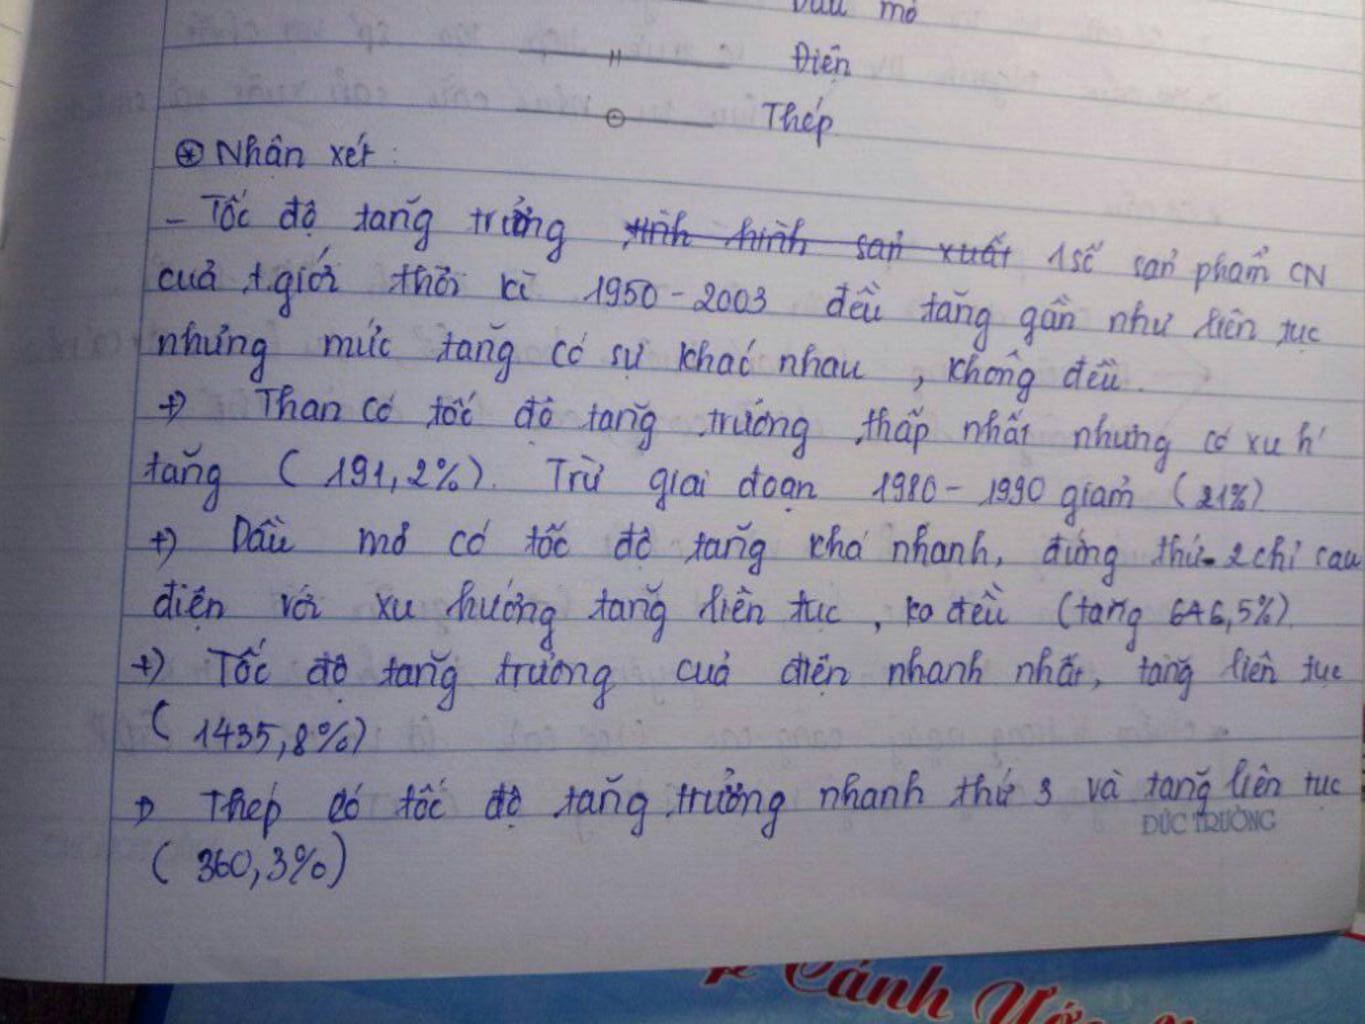 Dầu mỏ
" Điện
Thép
⊛ Nhận xét:
- Tốc độ tăng trưởng tình hình sản xuất 1 số sản phẩm CN
của t.giới thời kì 1950 - 2003 đều tăng gần như liên tục
nhưng mức tăng có sự khác nhau, không đều.
+) Than có tốc độ tăng trưởng thấp nhất nhưng có xu h'
tăng (191,2%). Trừ giai đoạn 1980 - 1990 giảm (21%)
+) Dầu mỏ có tốc độ tăng khá nhanh, đứng thứ 2 chỉ sau
điện với xu hướng tăng liên tục, ko đều (tăng 646,5%).
+) Tốc độ tăng trưởng của điện nhanh nhất, tăng liên tục
(1435,8%)
+) Thép có tốc độ tăng trưởng nhanh thứ 3 và tăng liên tục
ĐỨC TRƯỜNG
(360,3%)
Cánh